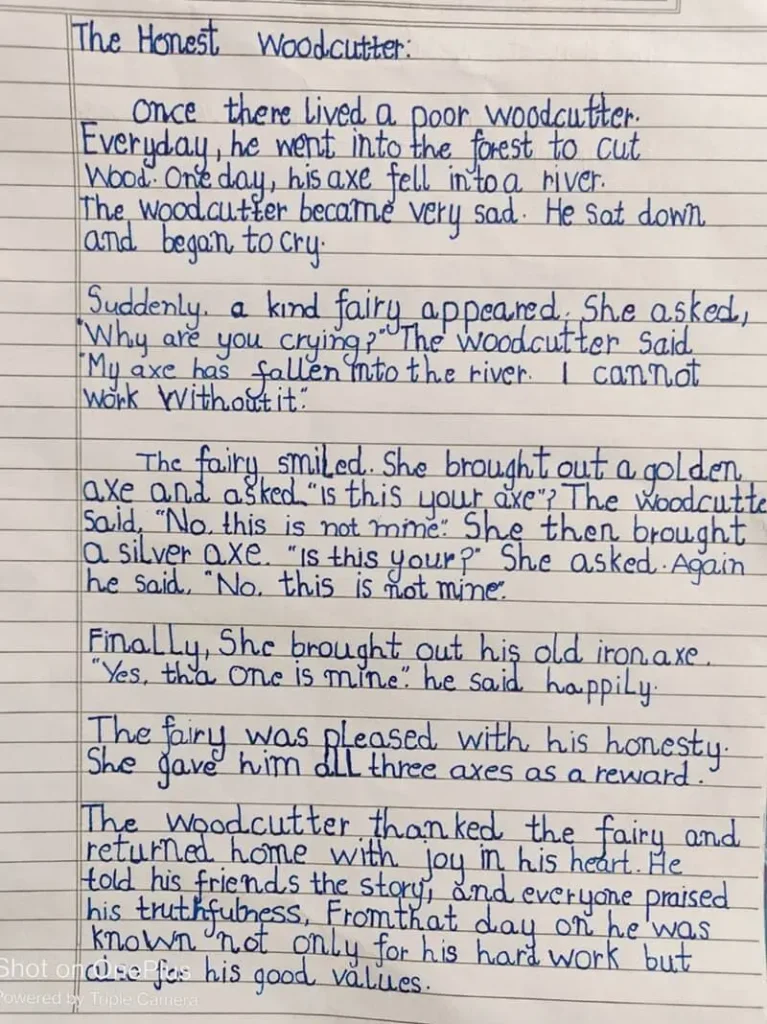 The Honest Woodcutter:
Once there lived a poor woodcutter.
Everyday, he went into the forest to cut
Wood. One day, his axe fell into a river.
The woodcutter became very sad. He sat down
and began to cry.
Suddenly. a kind fairy appeared. She asked,
"Why are you crying?" The woodcutter said
"My axe has fallen into the river. I cannot
work without it".
The fairy smiled. She brought out a golden
axe and asked "Is this your axe"? The woodcutte
said, "No. this is not mine". She then brought
a silver axe. "Is this your?" She asked. Again
he said, "No. this is not mine".
Finally, She brought out his old iron axe.
"Yes, tha one is mine". he said happily.
The fairy was pleased with his honesty.
She gave him all three axes as a reward.
The woodcutter thanked the fairy and
returned home with joy in his heart. He
told his friends the story, and everyone praised
his truthfulness, From that day on he was
known not only for his hard work but
for his good values.
Shot on OnePlus
Powered by Triple Camera